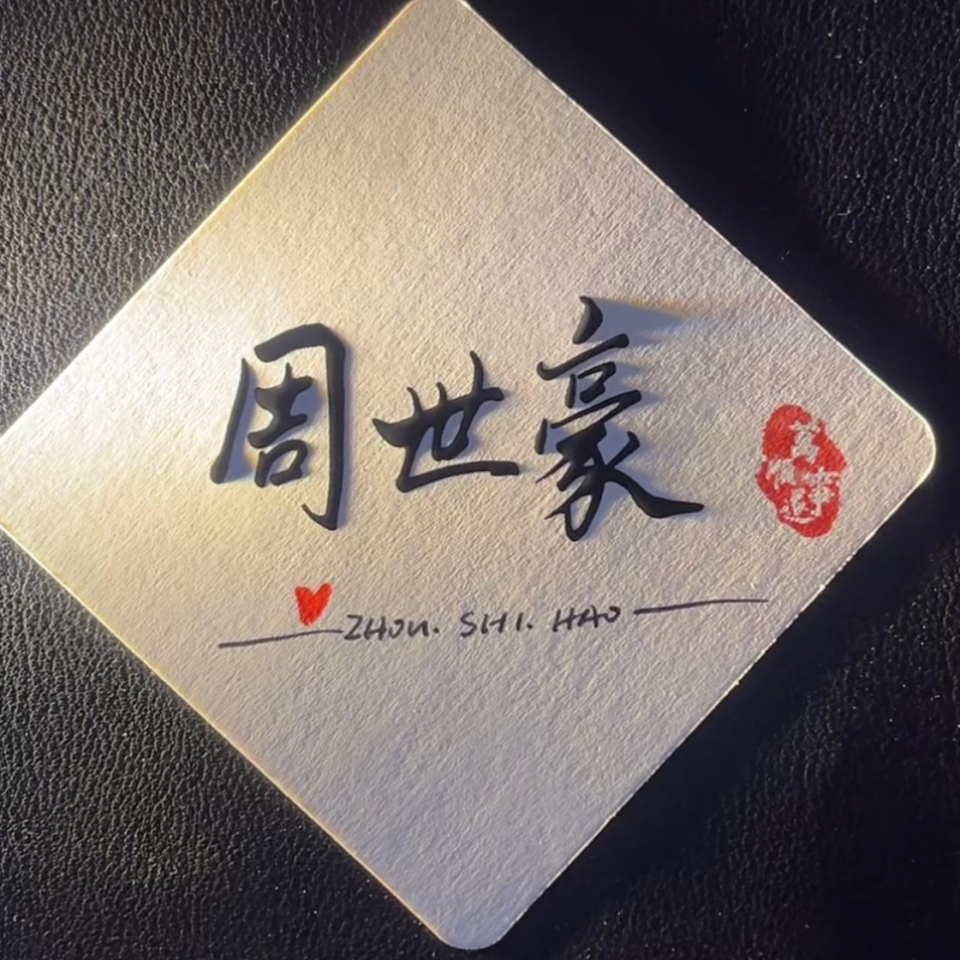 周世豪
ZHOU. SHI. HAO